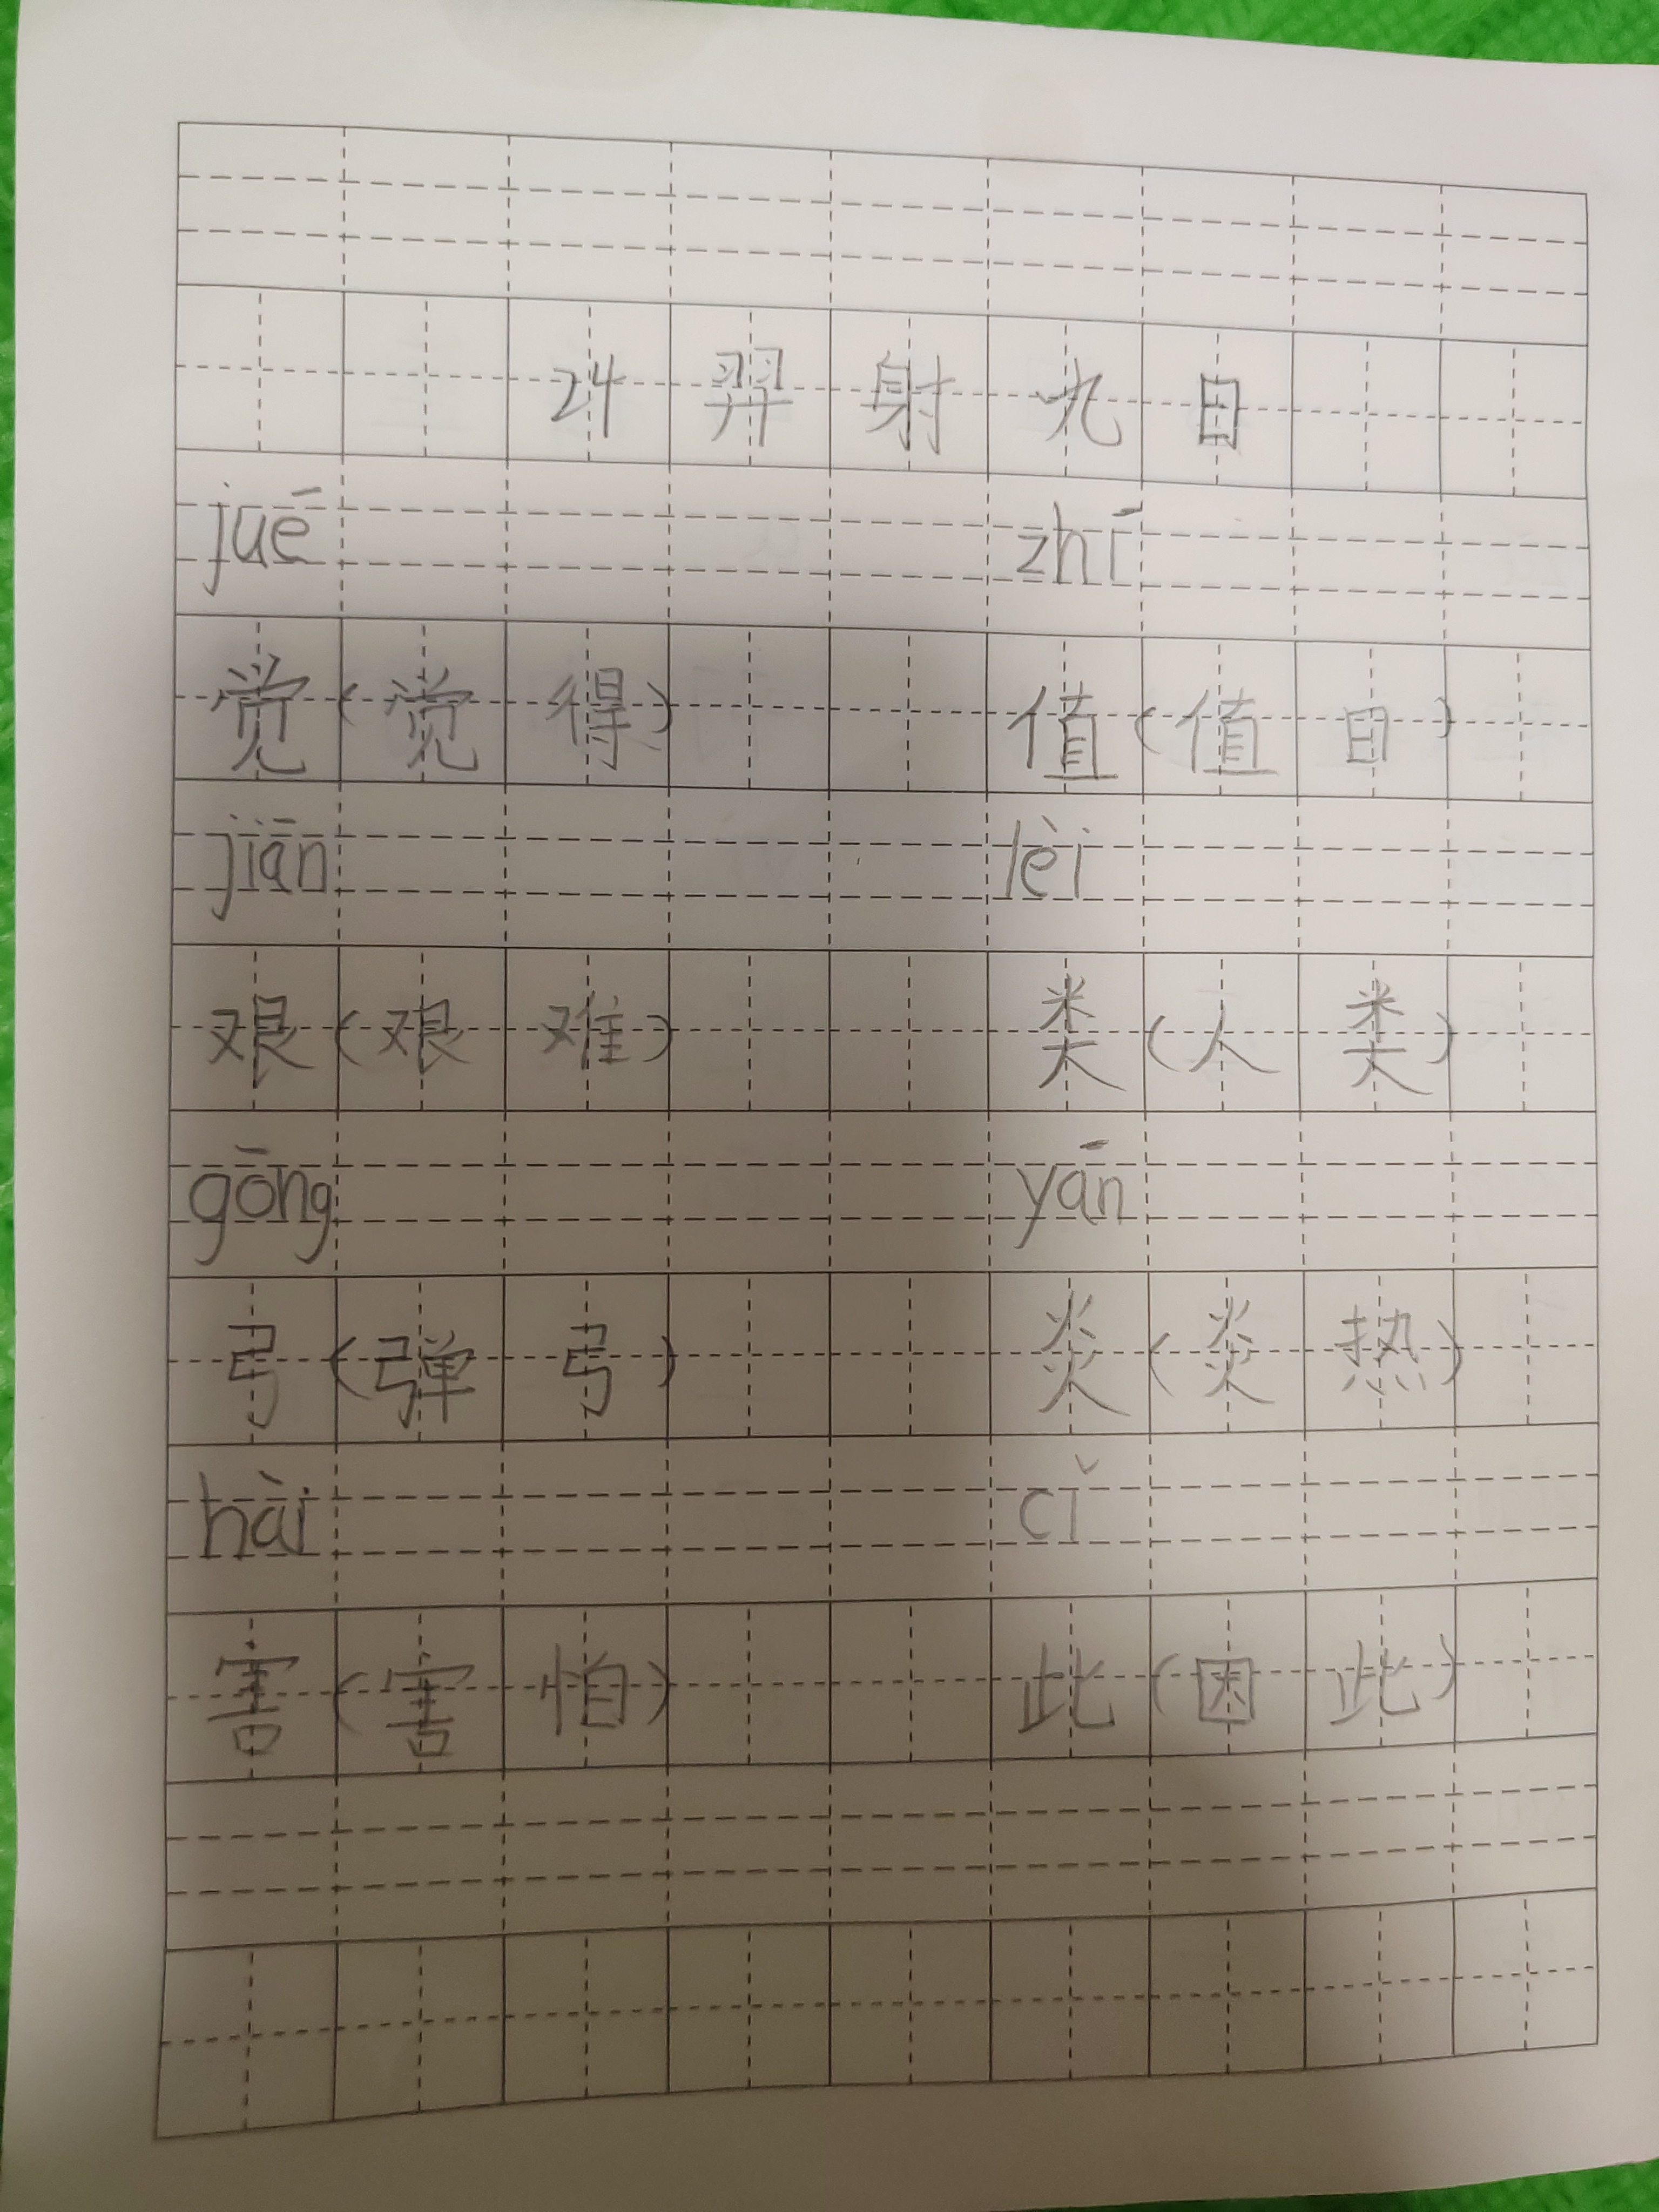 24 羿射九日
jué zhí
觉(觉得) 值(值日)
jiān lèi
艰(艰难) 类(人类)
gōng yán
弓(弹弓) 炎(炎热)
hài cǐ
害(害怕) 此(因此)